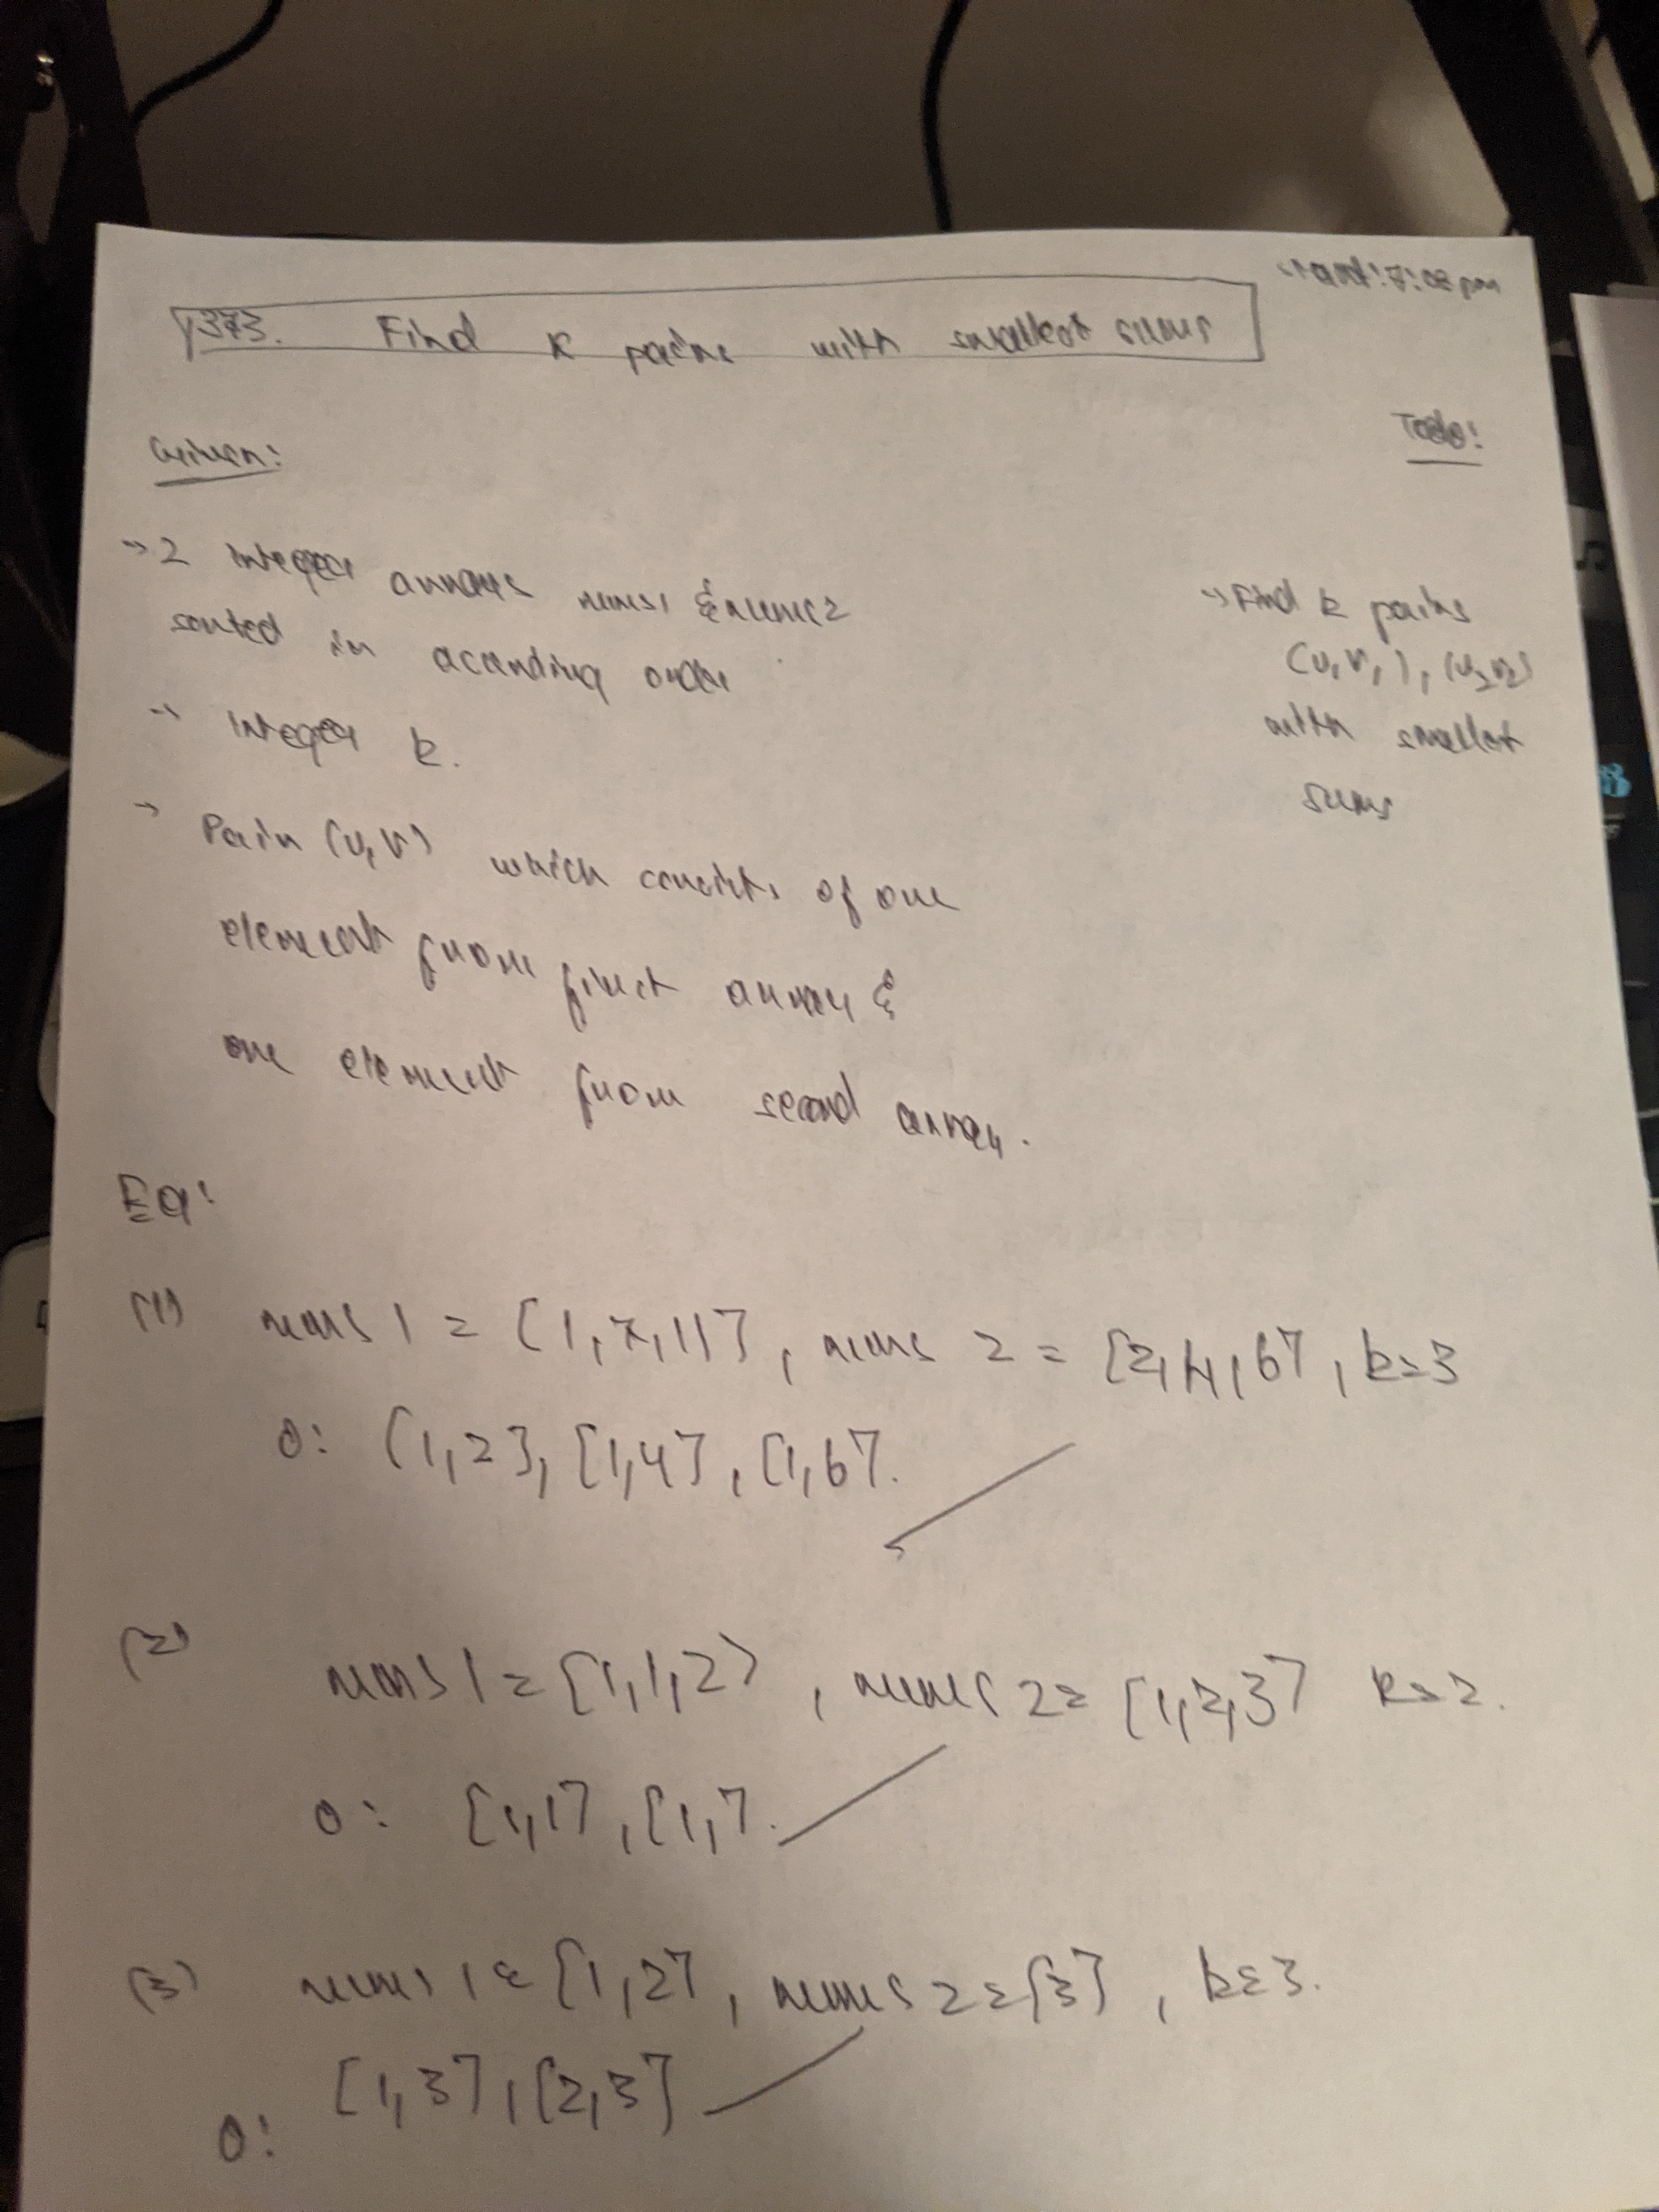 Start: 7:08 pm
373. Find K pairs with smallest sums
Given:
Todo:
→ 2 integer arrays nums1 & nums2
sorted in acending order
→ integer k.
→ Pair (u,v) which consists of one
element from first array &
one element from second array.
→ Find k pairs
(u,v,), (u2v2)
with smallest
sums
Eg:
(1) nums1 = [1,7,11], nums 2 = [2,4,6], k=3
O: [1,2], [1,4], [1,6].
(2) nums1 = [1,1,2], nums2= [1,2,3] k=2.
O: [1,1], [1,].
(3) nums1 = [1,2], nums2=[3], k=3.
O: [1,3], [2,3]